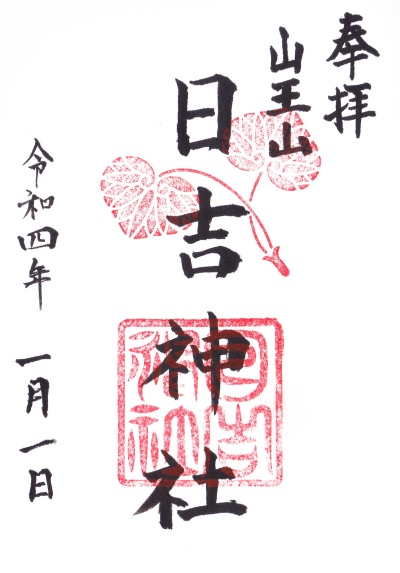 奉拝
山王山
日吉神社
日吉神社
令和四年 一月一日